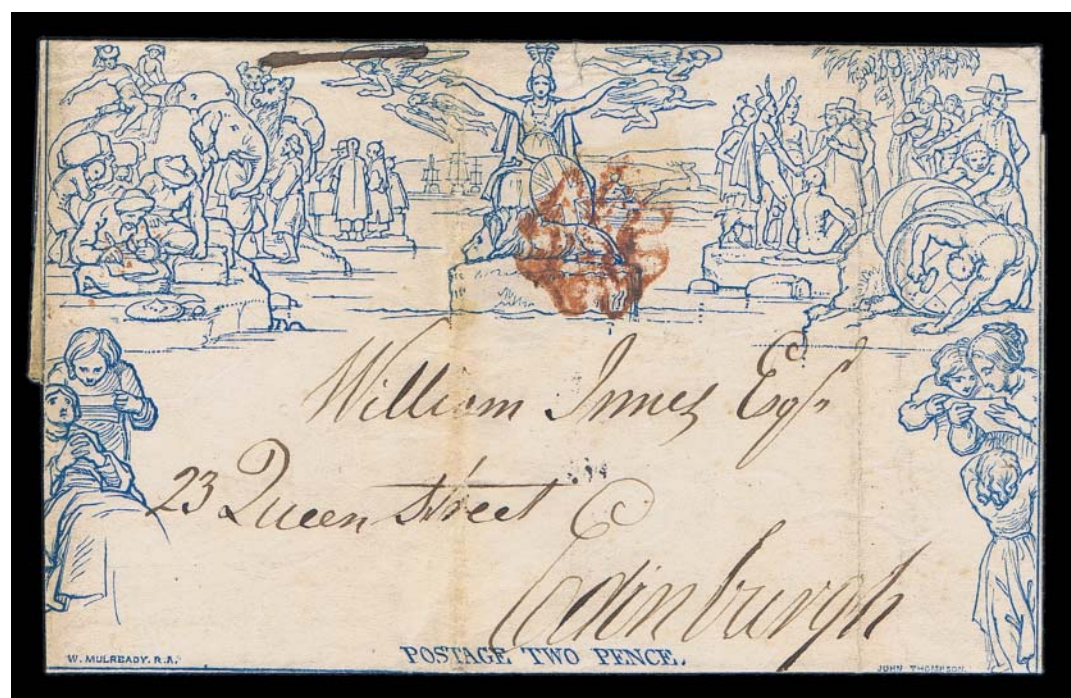 William Innes Esqr
23 Queen Street
Edinburgh
W. MULREADY. R.A.
POSTAGE TWO PENCE.
JOHN THOMPSON.